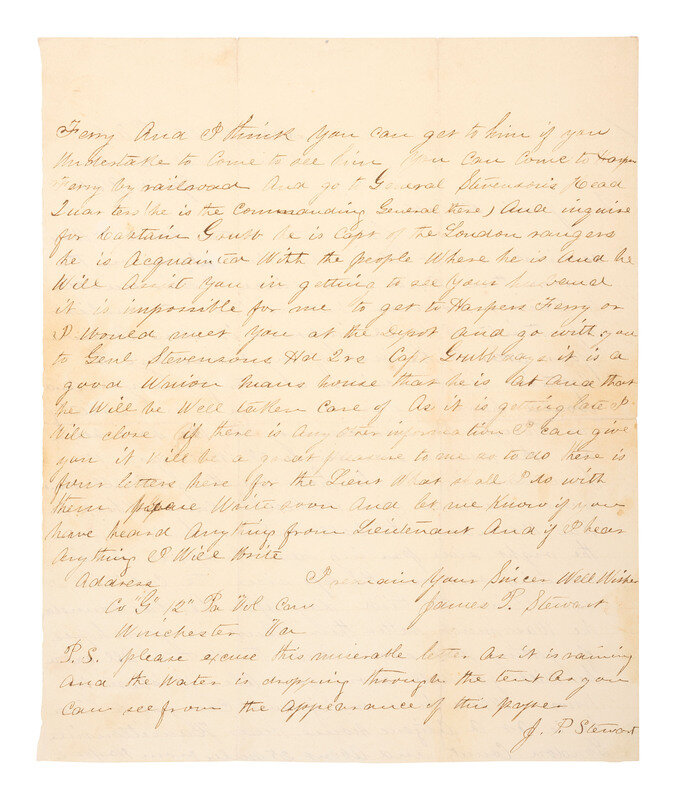 Ferry And I think you can get to him if you
Undertake to Come to see him You can Come to Harpers
Ferry by railroad And go to General Stevensons Head
Quarters (he is the Commanding General there) And inquire
for Captain Grubb he is Capt of the London rangers
he is Acquainted With the people Where he is and he
Will Assist You in getting to see Your husband
it is impossible for me to get to Harpers Ferry or
I Would meet You at the Depot And go with you
to Genl Stevensons Hd Qrs Capt Grubb says it is a
good Union mans house that he is at And that
he Will be Well taken care of As it is getting late I
Will close if there is Any other information I can give
you it Will be a great pleasure to me to do there is
four letters here for the Lieut What shall I do with
them Write soon And let me Know if you
have heard Anything from Lieutenant And if I hear
Anything I Will Write
Address I remain Your Sincer Well Wisher
Co "G" 12" Pa Vol Cav James P. Stewart
Winchester Va
P.S. please excuse this miserable letter As it is raining
And the Water is dropping through the tent As you
Can see from the Appearance of this paper
J. P. Stewart